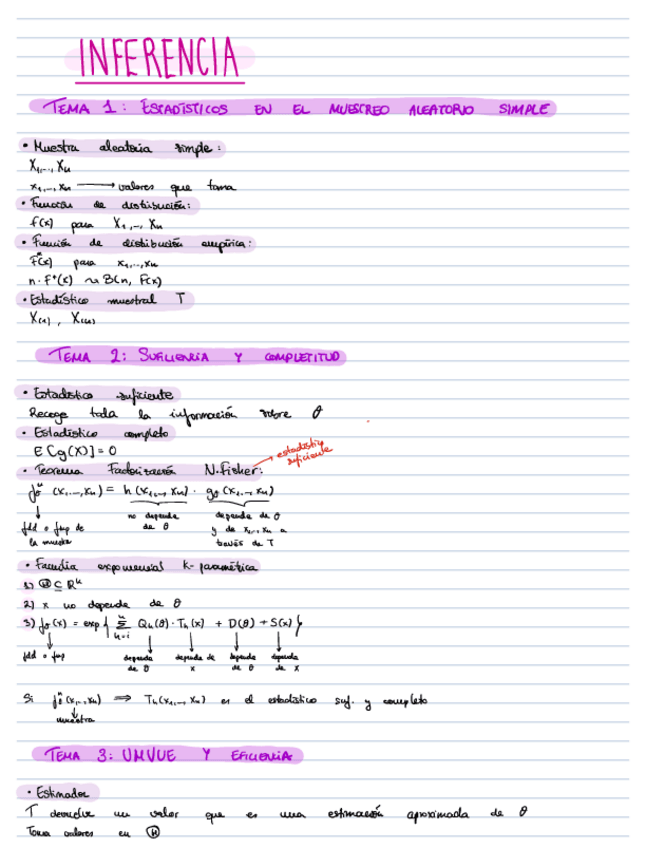 INFERENCIA
TEMA 1: ESTADÍSTICOS EN EL MUESTREO ALEATORIO SIMPLE
• Muestra aleatoria simple:
X₁,..., Xₙ
x₁,..., xₙ ⟶ valores que toma
• Función de distribución:
f(x) para X₁,..., Xₙ
• Función de distribución empírica:
F*(x) para x₁,...,xₙ
n·F*(x) ~ B(n, F(x))
• Estadístico muestral T
X₍₁₎, X₍ₙ₎
TEMA 2: SUFICIENCIA Y COMPLETITUD
• Estadístico suficiente
Recoge toda la información sobre θ
• Estadístico completo
E[g(X)] = 0
• Teorema Factorización N.Fisher: → estadístico suficiente
fθⁿ (x₁,...,xₙ) = h(x₁,..., xₙ) · gθ(x₁,..., xₙ)
↓ no depende depende de θ
fdd o fmp de de θ y de x₁,..,xₙ a
la muestra través de T
• Familia exponencial k-paramétrica
1) Θ ⊆ Rᵏ
2) x no depende de θ
3) fθ(x) = exp{ Σ Qₕ(θ)·Tₕ(x) + D(θ) + S(x) }
fdd o fmp depende depende de depende depende
de θ x de θ de x
Si fθⁿ(x₁,...,xₙ) ⟹ Tₕ(x₁,...,xₙ) es el estadístico suf. y completo
muestra
TEMA 3: UMVUE Y EFICIENCIA
• Estimador
T devuelve un valor que es una estimación aproximada de θ
Toma valores en Θ